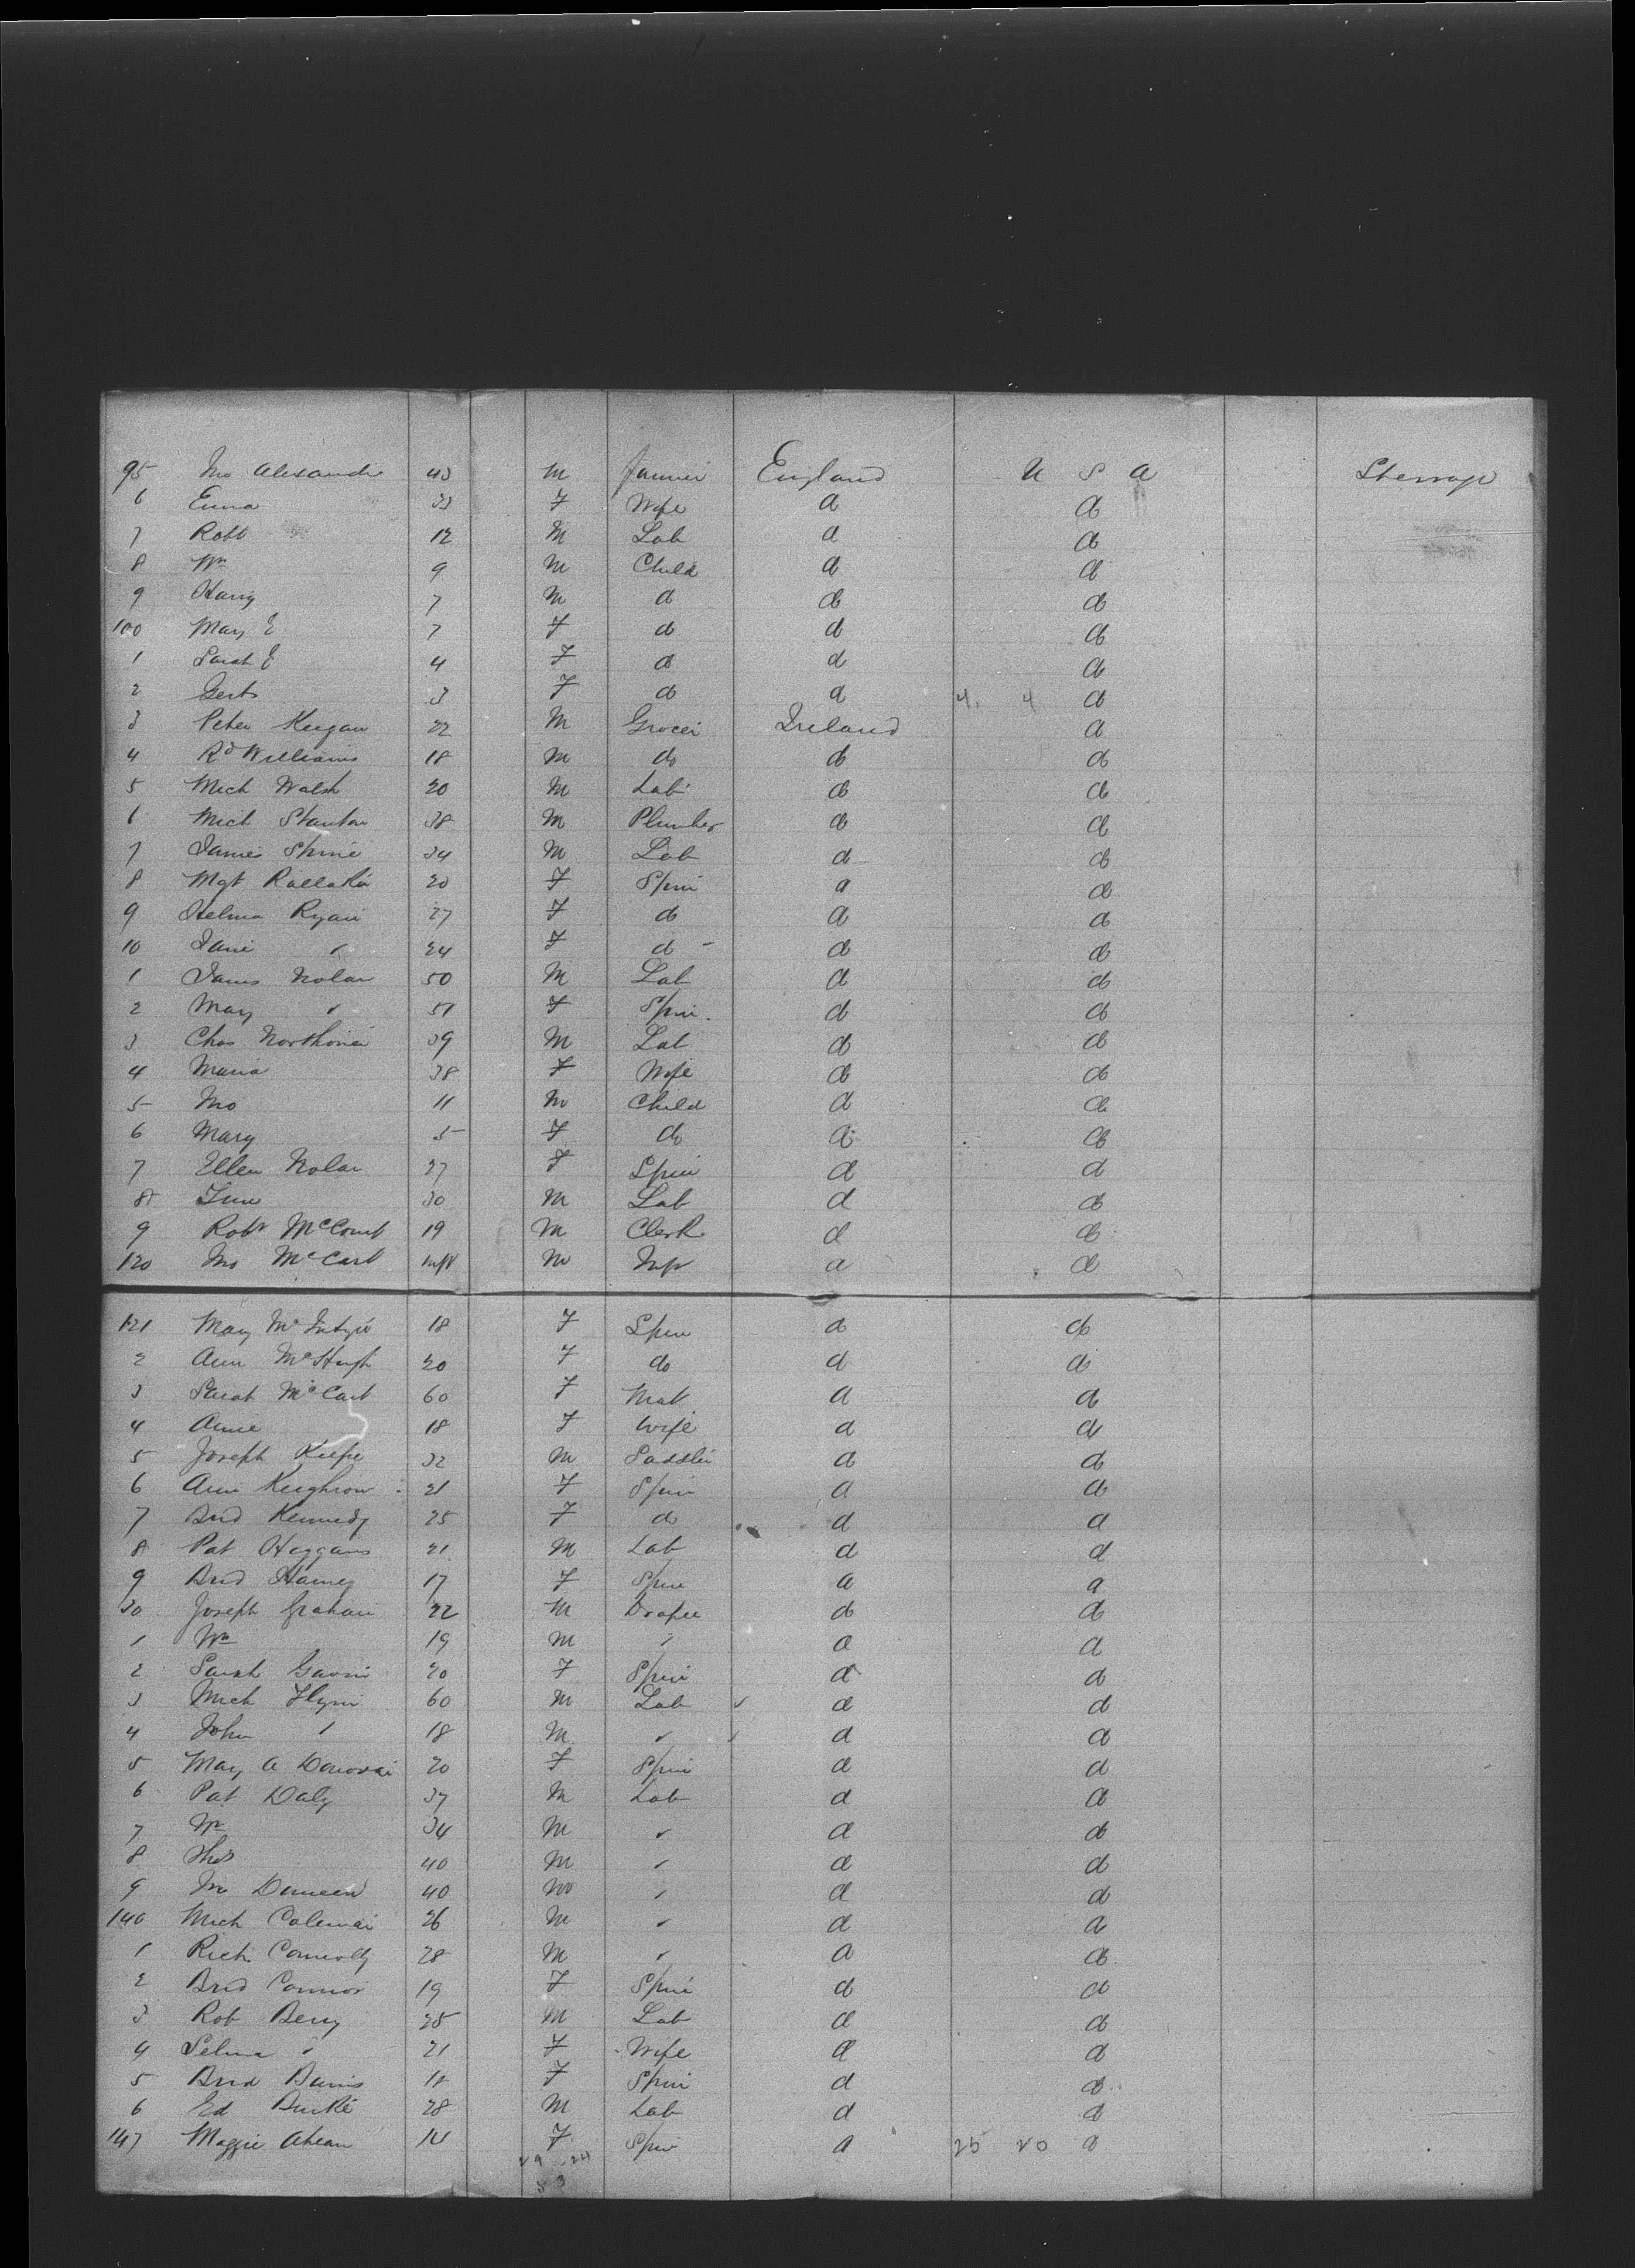 95 Jno Alexander 43 M Farmer England U S A Steerage
6 Emma 33 F Wife do do
7 Robt 12 M Lab do do
8 Wm 9 M Child do do
9 Harry 7 M do do do
100 Mary E 7 F do do do
1 Sarah E 4 F do do do
2 Gert 3 F do do 4 4 do
3 Peter Keegan 22 M Grocer Ireland do
4 Rd Williams 18 M do do do
5 Mich Walsh 20 M Lab do do
6 Mich Stanton 38 M Plumber do do
7 James Shine 34 M Lab do do
8 Mgt 20 F Spin do do
9 Ryan 27 F do do do
10 Jane " 24 F do do do
1 James Nolan 50 M Lab do do
2 Mary " 51 F Spin do do
3 Chas 39 M Lab do do
4 Maria 38 F Wife do do
5 Jno 11 M Child do do
6 Mary 5 F do do do
7 Ellen Nolan 27 F Spin do do
8 30 M Lab do do
9 Robt McComb 19 M Clerk do do
120 Jno McCart Inft M Inft do do
121 Mary McIntyre 18 F Spin do do
2 Ann McHugh 20 F do do do
3 Sarah McCart 60 F Mat do do
4 Anne 18 F Wife do do
5 Joseph Keefe 32 M Saddler do do
6 Ann 21 F Spin do do
7 Brid Kennedy 25 F do do do
8 Pat Haggans 21 M Lab do do
9 Brid 17 F Spin do do
30 Joseph Graham 22 M Draper do do
1 Wm 19 M " do do
2 Sarah Gavin 20 F Spin do do
3 Mich Flynn 60 M Lab do do
4 John " 18 M " do do
5 Mary A Donovan 20 F Spin do do
6 Pat Daly 37 M Lab do do
7 Wm 34 M " do do
8 Thos 40 M " do do
9 Jno 40 M " do do
140 Mich Coleman 26 M " do do
1 Rich Connolly 28 M " do do
2 Brid Connor 19 F Spin do do
3 Rob Berry 25 M Lab do do
4 Selina " 21 F Wife do do
5 Brid 18 F Spin do do
6 Ed Burke 28 M Lab do do
147 Maggie Ahearn 14 F Spin do 25 20 do
29 24
53